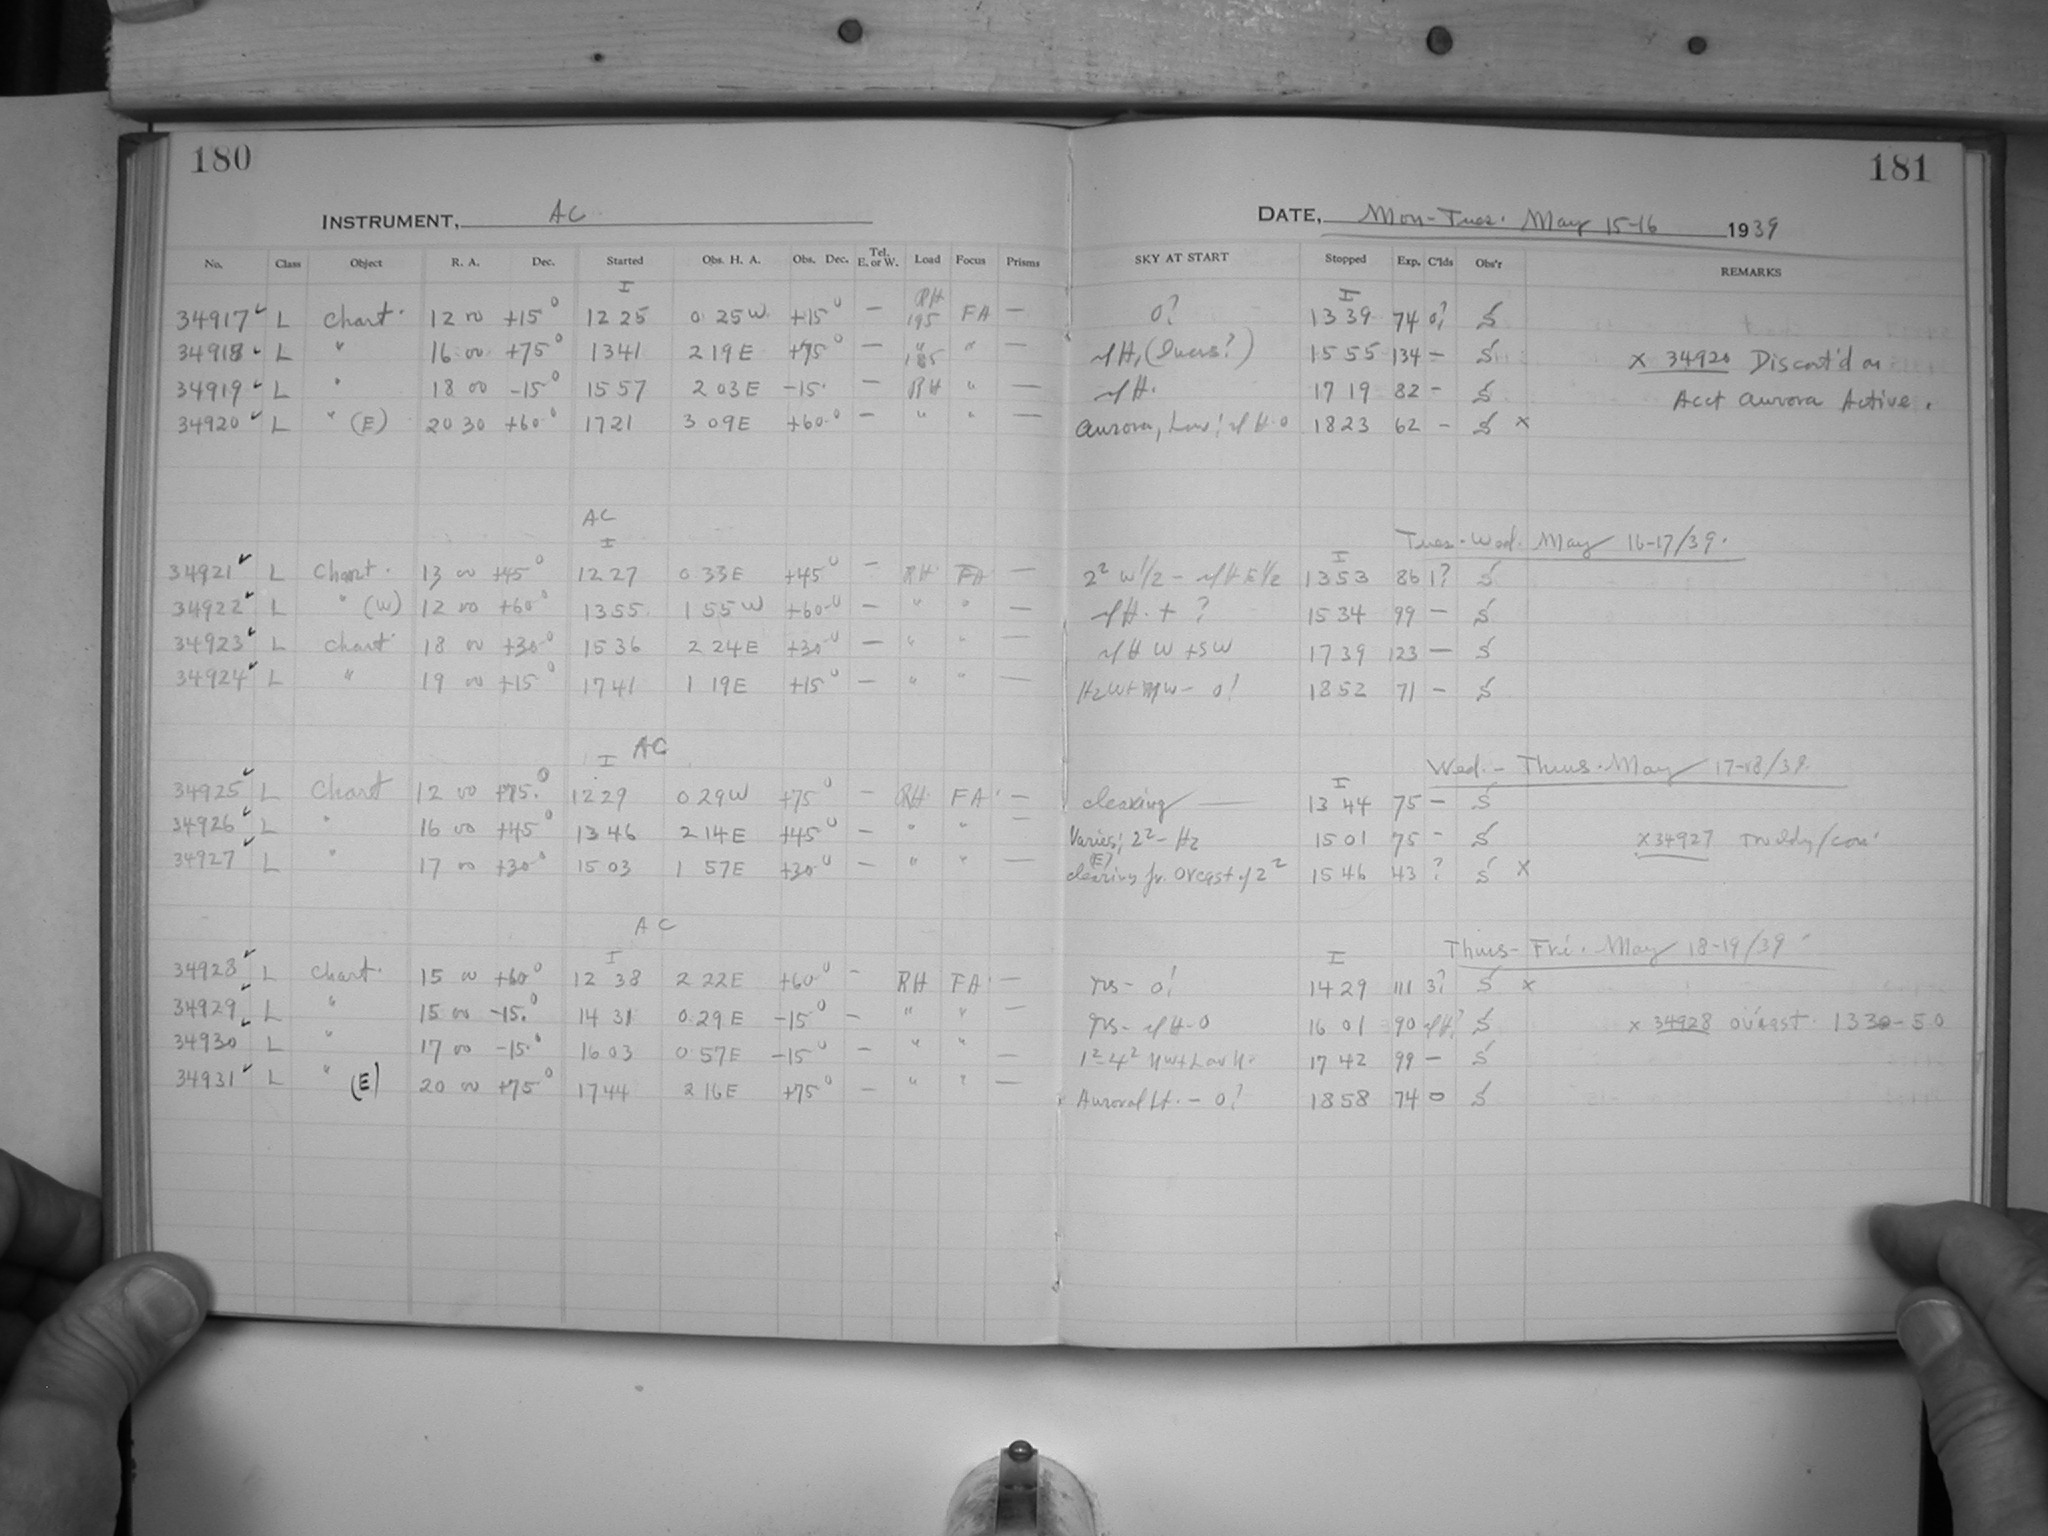 180
181
INSTRUMENT, AC
DATE, Mon-Tues. May 15-16 1939
No. Class Object R. A. Dec. Started Obs. H. A. Obs. Dec. Tel. E. or W. Load Focus Prisms SKY AT START Stopped Exp. C'lds Obs'r REMARKS
I RH I
34917 ✓ L Chart. 12 00 +15° 12 25 0 25 W +15° — 195 FA — 0? 13 39 74 0? S
34918 ✓ L " 16 00 +75° 13 41 2 19 E +75° — " 185 " — 15 55 134 — S x 34920 Discont'd on
34919 ✓ L " 18 00 -15° 15 57 2 03 E -15° — RH " — 17 19 82 — S Acct Aurora Active.
34920 ✓ L " (E) 20 30 +60° 17 21 3 09 E +60° — " " — Aurora, Low! 18 23 62 — S x
AC
Tues-Wed. May 16-17/39.
I I
34921 ✓ L Chart. 13 00 +45° 12 27 0 33 E +45° — RH FA — 2² W 1/2 - E 1/2 13 53 86 1? S
34922 ✓ L " (W) 12 00 +60° 13 55 1 55 W +60° — " " — + ? 15 34 99 — S
34923 ✓ L Chart 18 00 +30° 15 36 2 24 E +30° — " " — W + SW 17 39 123 — S
34924 ✓ L " 19 00 +15° 17 41 1 19 E +15° — " " — 0! 18 52 71 — S
AC
Wed.-Thurs. May 17-18/39.
I I
34925 ✓ L Chart 12 00 +75° 12 29 0 29 W +75° — RH FA — clearing — 13 44 75 — S
34926 ✓ L " 16 00 +45° 13 46 2 14 E +45° — " " — Varies; 2² - Hz 15 01 75 — S x 34927
34927 ✓ L " 17 00 +30° 15 03 1 57 E +30° — " " — clearing (E) fr. Orcast 2² 15 46 43 ? S x
AC
Thurs-Fri. May 18-19/39
I I
34928 ✓ L Chart. 15 00 +60° 12 38 2 22 E +60° — RH FA — 0! 14 29 111 3? S x
34929 ✓ L " 15 00 -15° 14 31 0 29 E -15° — " " — 16 01 90 S x 34928 Ov'cast 1330-50
34930 ✓ L " 17 00 -15° 16 03 0 57 E -15° — " " — 1²-4² 17 42 99 — S
34931 ✓ L " (E) 20 00 +75° 17 44 2 16 E +75° — " " — Auroral Lt. - 0? 18 58 74 0 S